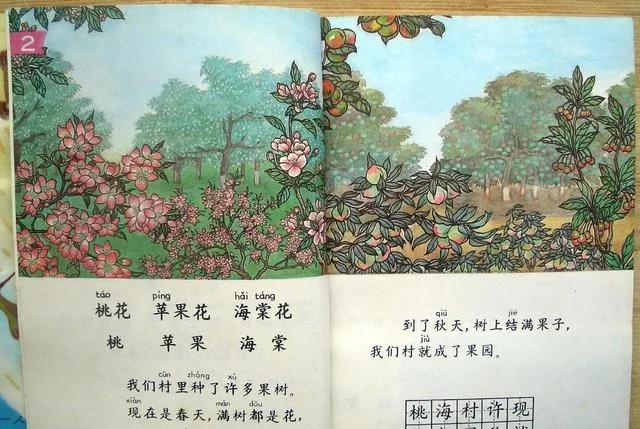 2
táo píng hǎi táng
桃花 苹果花 海棠花
桃 苹果 海棠
cūn zhòng xǔ
我们村里种了许多果树。
xiàn mǎn dōu
现在是春天,满树都是花,
qiū jiē
到了秋天,树上结满果子,
jiù
我们村就成了果园。
桃海村许现